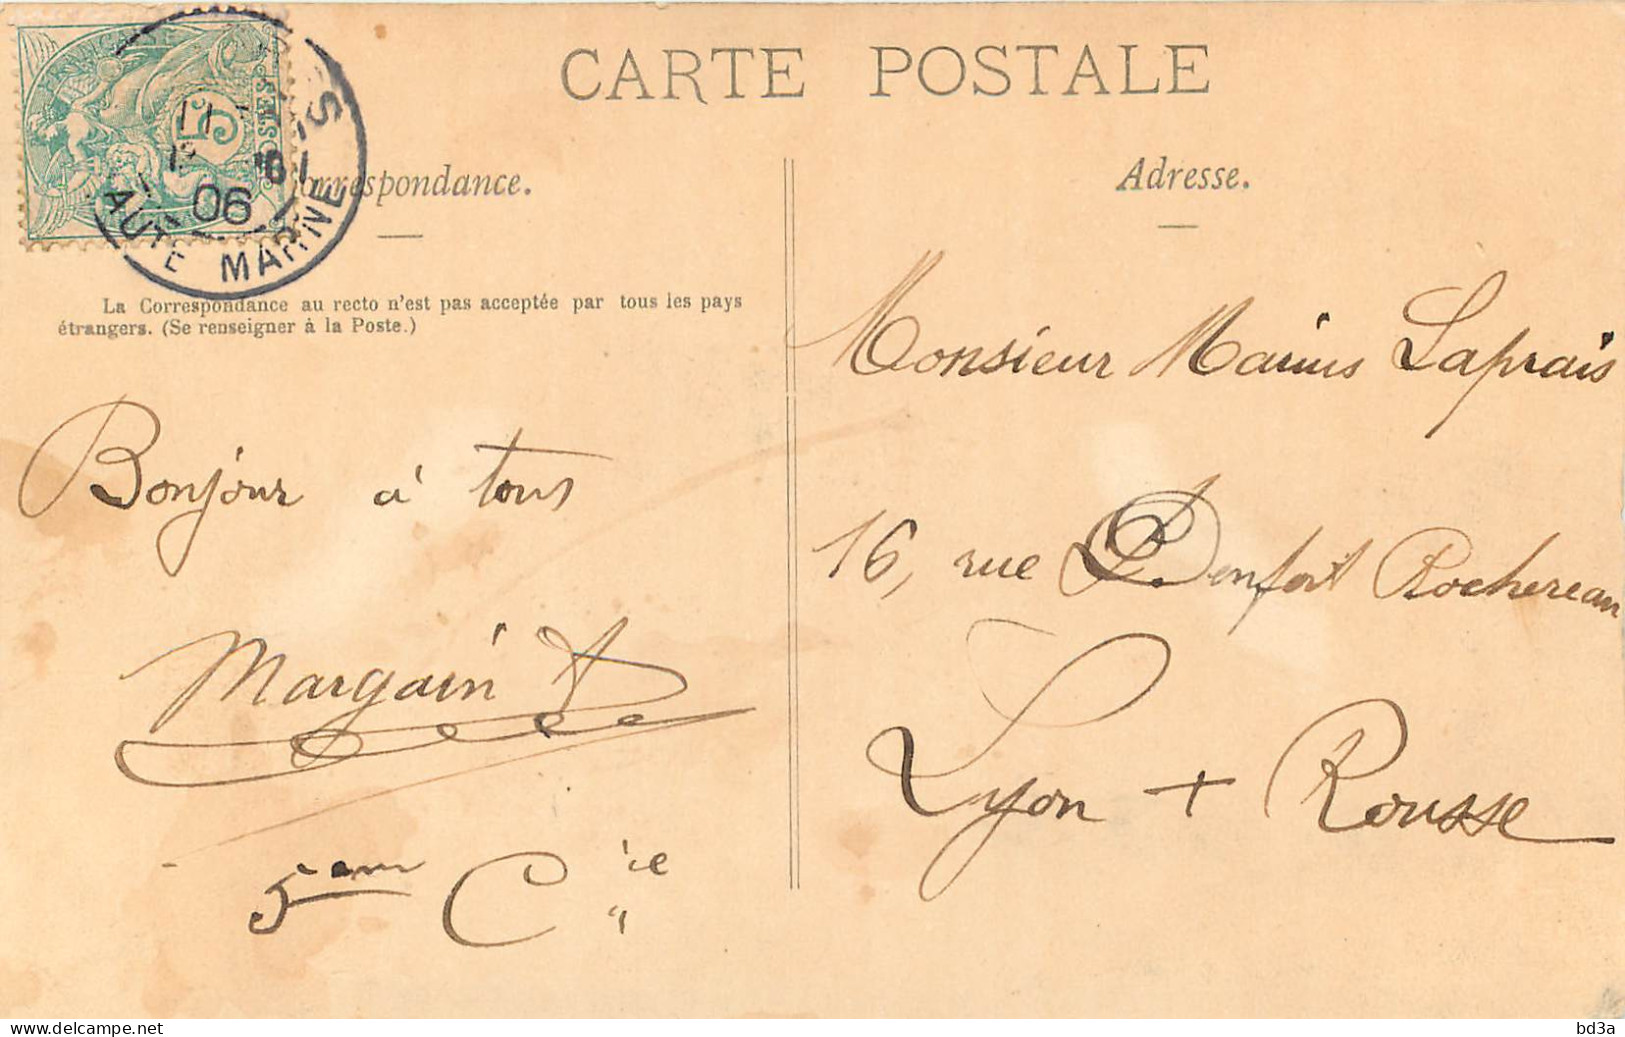 CARTE POSTALE
Correspondance.
Adresse.
La Correspondance au recto n'est pas acceptée par tous les pays
étrangers. (Se renseigner à la Poste.)
5
POSTES
11
06
HAUTE MARNE
Bonjour à tous
Margain
5eme Cie
Monsieur Marius Laprais
16, rue Denfert Rochereau
Lyon + Rousse
delcampe.net
bd3a